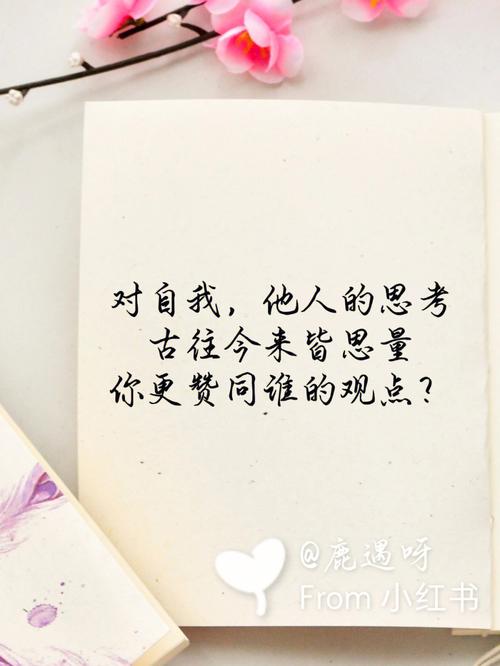 对自我，他人的思考
古往今来皆思量
你更赞同谁的观点？
@鹿遇呀
From 小红书